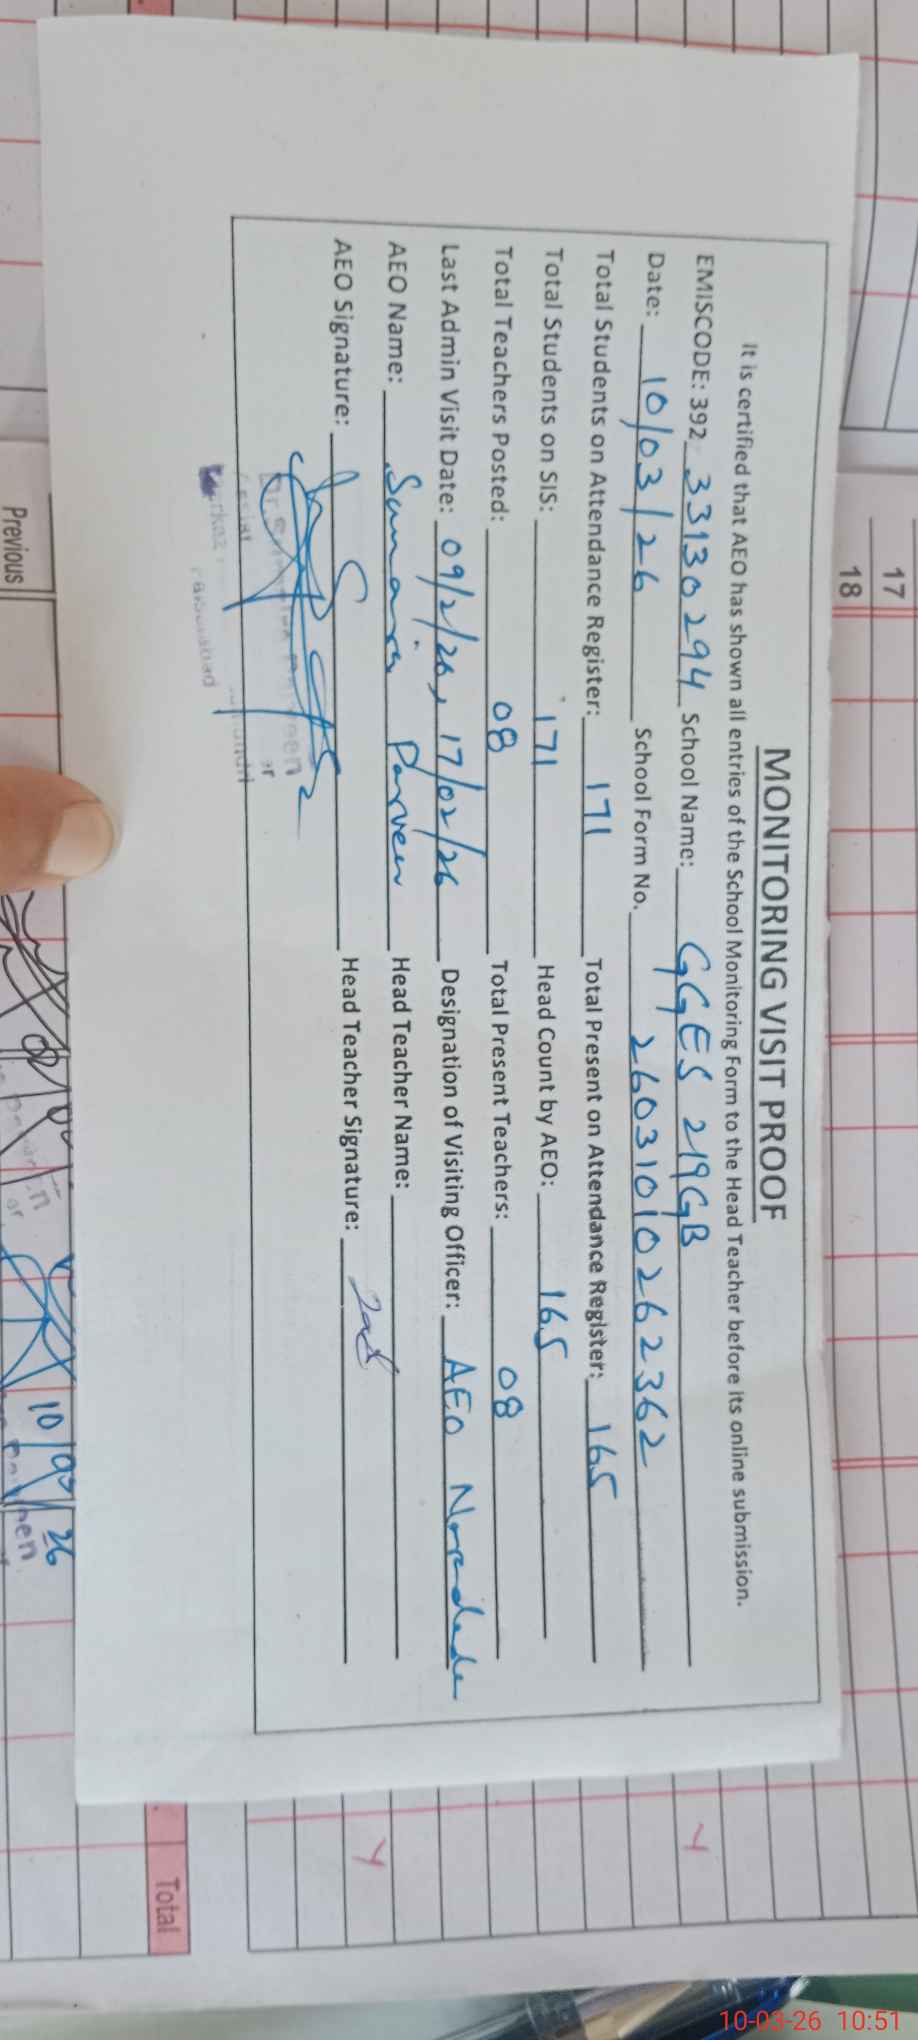 MONITORING VISIT PROOF
It is certified that AEO has shown all entries of the School Monitoring Form to the Head Teacher before its online submission.
EMISCODE: 392 33130294 School Name: GGES 219GB
Date: 10/03/26 School Form No. 26031010262362
Total Students on Attendance Register: 171 Total Present on Attendance Register: 165
Total Students on SIS: 171 Head Count by AEO: 165
Total Teachers Posted: 08 Total Present Teachers: 08
Last Admin Visit Date: 09/2/26, 17/02/26 Designation of Visiting Officer: AEO
AEO Name: Parveen Head Teacher Name:
AEO Signature: Head Teacher Signature:
17
18
Previous
Total
10-03-26 10:51